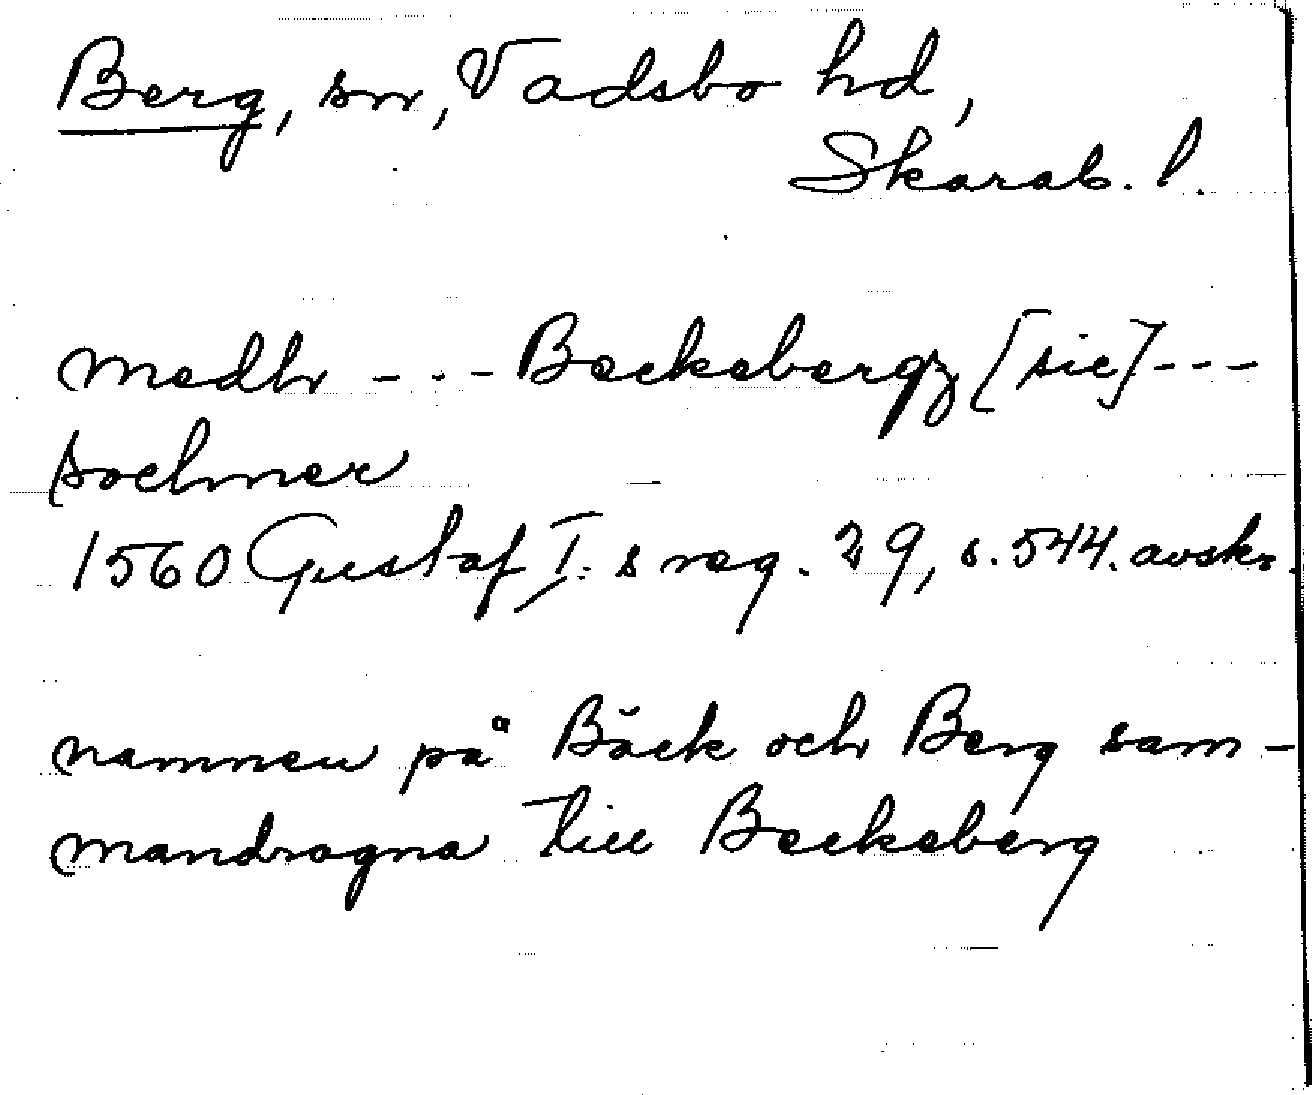 Berg, sn, Vadsbo hd,
Skarab. l.
medh - - - Beckebergz [sic] - - -
sochner
1560 Gustaf I:s reg. 29, s. 544. avskr.
namnen på Bäck och Berg sam-
mandragna till Beckeberg